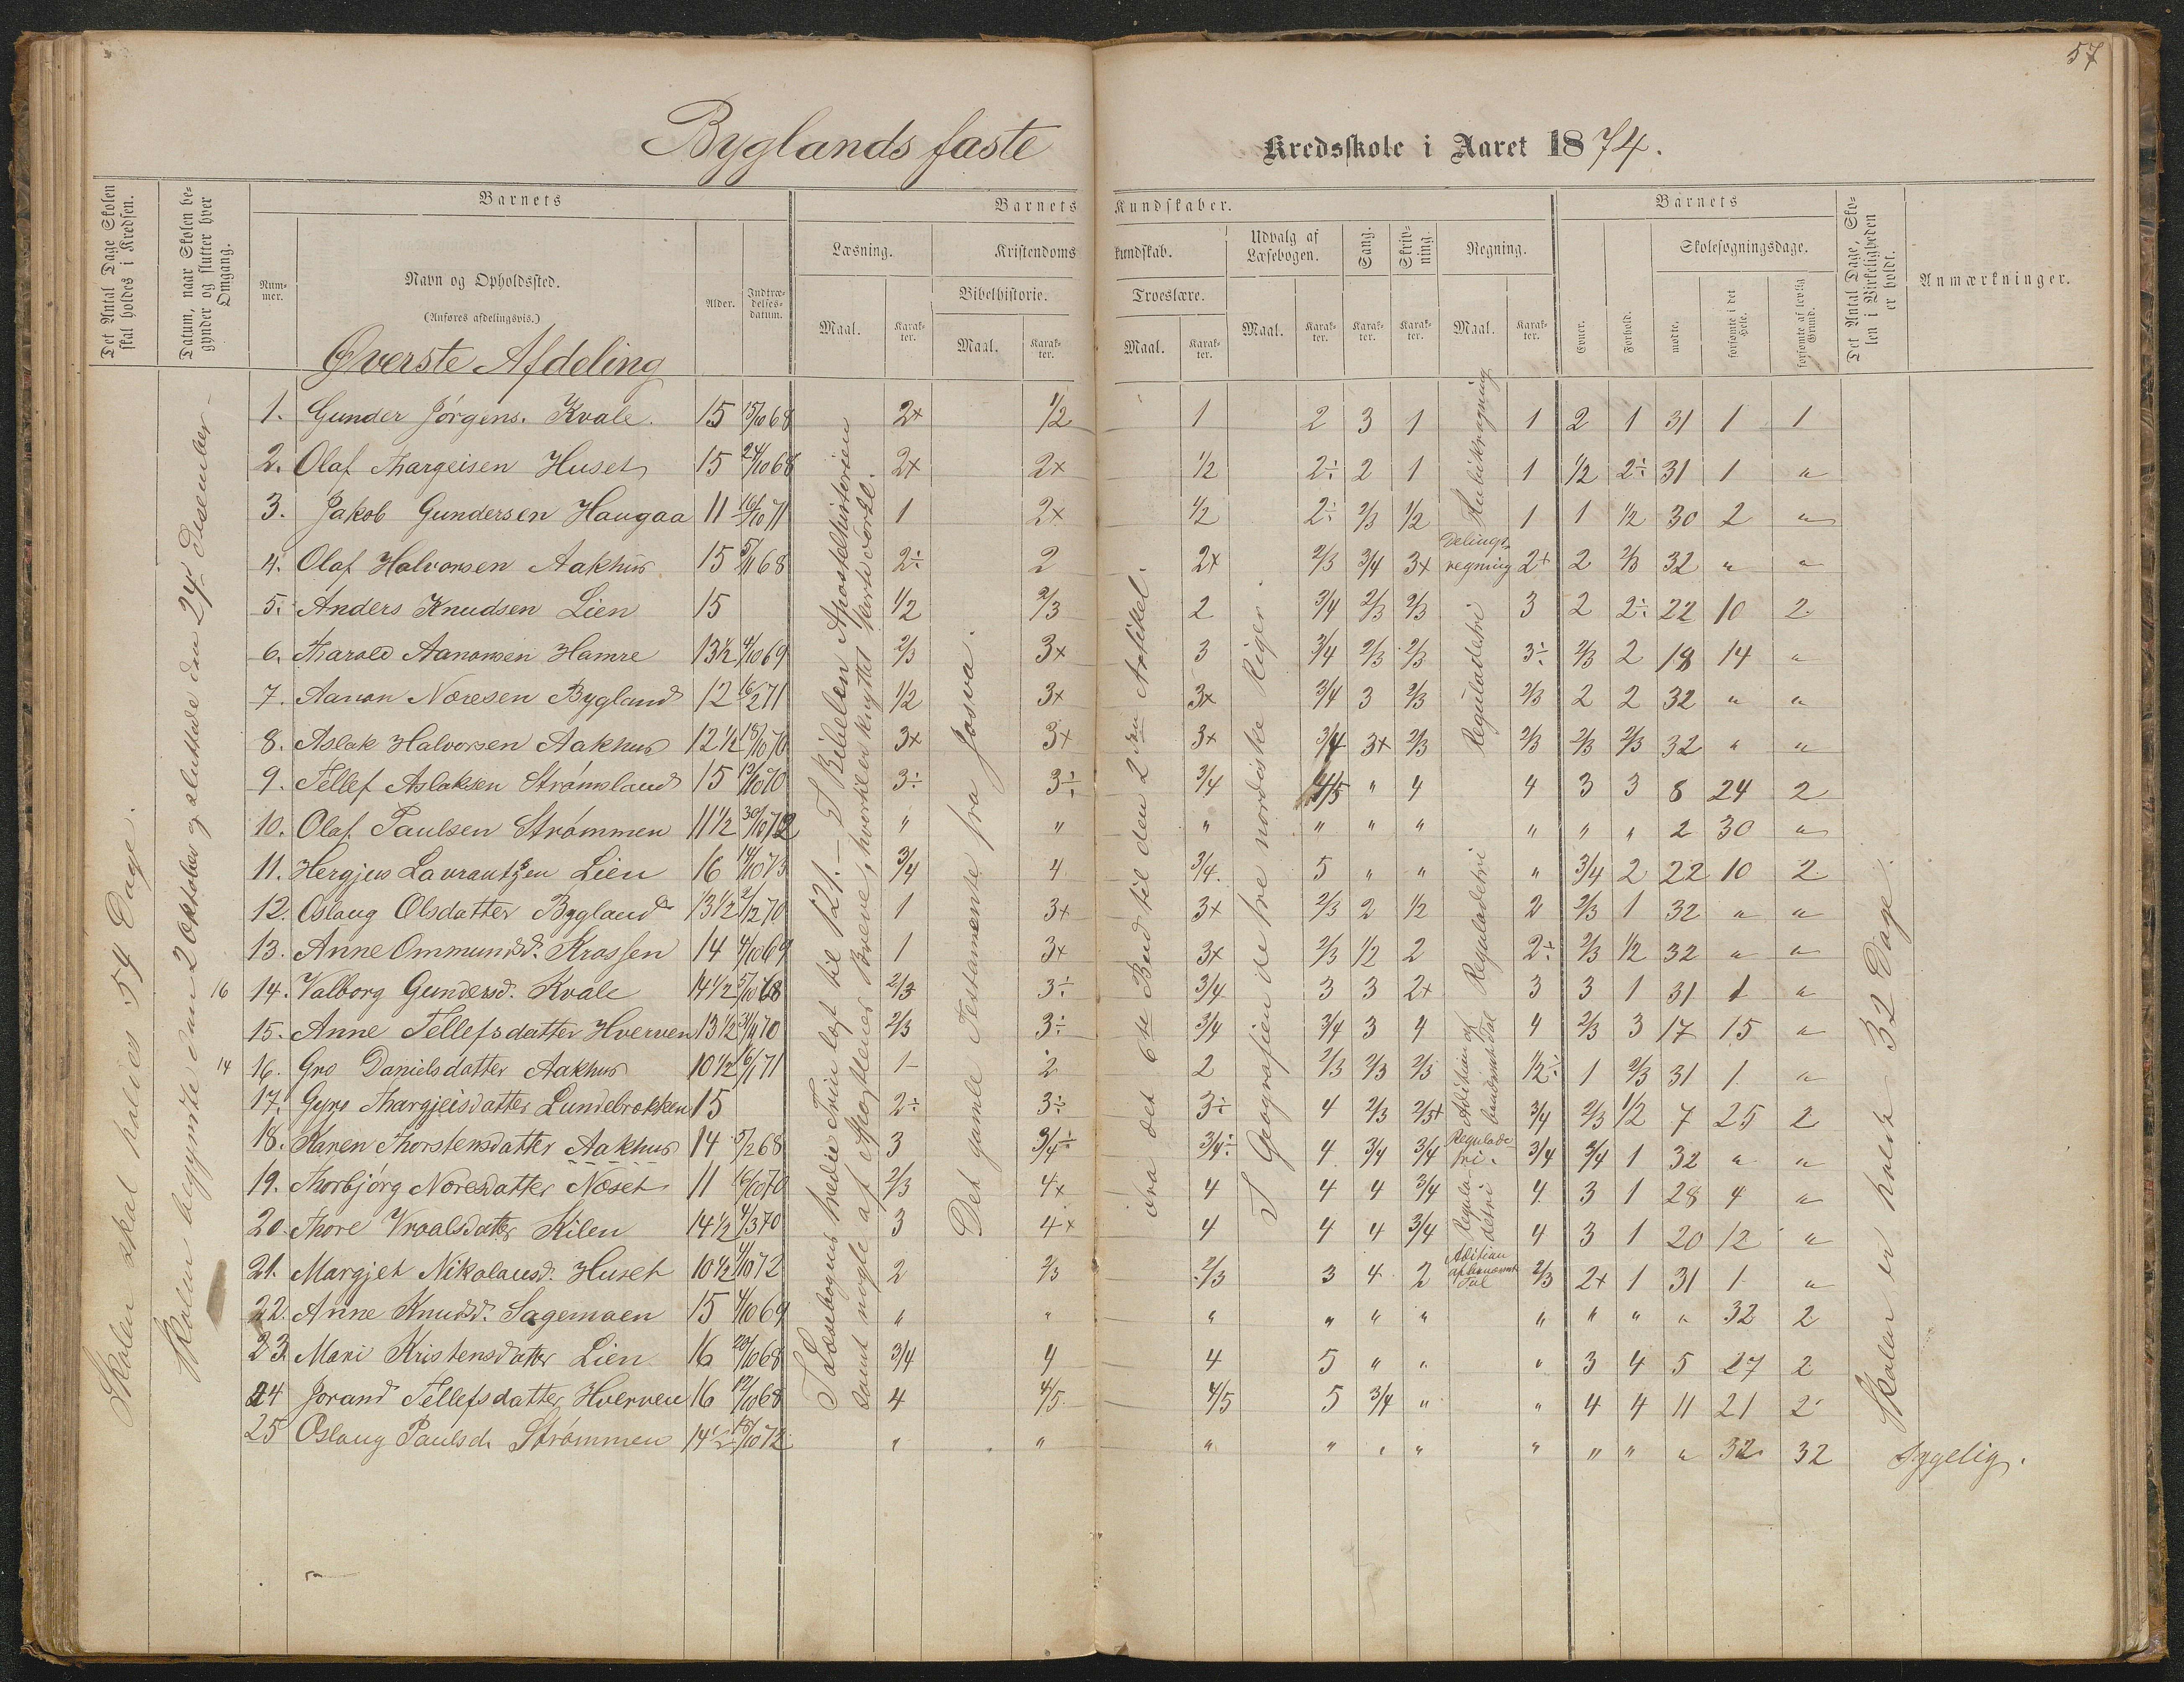 57
Byglands faste Kredsskole i Aaret 1874.
Det Antal Dage Skolen skal holdes i Kredsen.
Datum, naar Skolen begynder og slutter hver Omgang.
Barnets
Nummer.
Navn og Opholdssted.
(Anføres afdelingsvis.)
Alder.
Indtrædelsesdatum.
Barnets Kundskaber.
Læsning.
Maal.
Karakter.
Kristendomskundskab.
Bibelhistorie.
Maal.
Karakter.
Troeslære.
Maal.
Karakter.
Udvalg af Læsebogen.
Maal.
Karakter.
Sang.
Karakter.
Skrivning.
Karakter.
Regning.
Maal.
Karakter.
Barnets
Evner.
Forhold.
Skolesøgningsdage.
mødte.
forsømte i det Hele.
forsømte af lovlig Grund.
Det Antal Dage, Skolen i Virkeligheden er holdt.
Anmærkninger.
Øverste Afdeling
Skolen skal holdes 54 Dage.
Skolen begyndte den 2 Oktober og sluttede den 24 Desember -
I Læsebogens tredie Trin læst til 121. - I Bibelen Apostelhistorien
samt nogle af Apostlenes Breve, hvortil er knyttet
Det gamle Testamente fra Josva.
det 6te Bud til den 2den Artikel.
I Geografien de tre nordiske Riger.
Skolen er holdt 32 Dage.
1. Gunder Jörgens. Kvale. 15 15/10 68 2+ 1/2 1 2 3 1 1 2 1 31 1 1
2. Olaf Thargeisen Huset 15 24/10 68 2+ 2+ 1/2 2÷ 2 1 1 1/2 2÷ 31 1 "
3. Jakob Gundersen Haugaa 11 16/10 71 1 2+ 1/2 2÷ 2/3 1/2 1 1 1/2 30 2 "
4. Olaf Halvorsen Aakhus 15 5/11 68 2÷ 2 2+ 2/3 3/4 3+ Delingsregning 2+ 2 2/3 32 " "
5. Anders Knudsen Lien 15 1/2 2/3 2 3/4 2/3 2/3 Reguladetri 3 2 2÷ 22 10 2
6. Tharald Aanonsen Hamre 13½ 4/10 69 2/3 3+ 3 3/4 2/3 2/3 3÷ 2/3 2 18 14 "
7. Aanon Noresen Bygland 12 16/2 71 1/2 3+ 3+ 3/4 3 2/3 2/3 2 2 32 " "
8. Aslak Halvorsen Aakhus 12½ 15/10 70 3+ 3+ 3+ 3/4 3+ 2/3 2/3 2/3 2/3 32 " "
9. Tellef Aslaksen Strømsland 15 12/10 70 3÷ 3÷ 3/4 4/5 " 4 4 3 3 8 24 2
10. Olaf Paulsen Strømmen 11½ 30/10 72 " " " " " " " " " 2 30 "
11. Hergjus Lavrantzen Lien 16 14/10 73 3/4 4 3/4 5 " " " 3/4 2 22 10 2
12. Oslaug Olsdatter Bygland 13½ 2/12 70 1 3+ 3+ 2/3 2 1/2 Reguladetri 2 2/3 1 32 " "
13. Anne Ommundsd. Krossen 14 4/10 69 1 3+ 3+ 2/3 1/2 2 2÷ 2/3 1/2 32 " "
16 14. Valborg Gundersd. Kvale 14½ 5/10 68 2/3 3÷ 3/4 3 3 2+ 3 3 1 31 1 "
15. Anne Tellefsdatter Hverven 13½ 31/1 70 2/3 3÷ 3/4 3/4 3 4 4 2/3 3 17 15 "
14 16. Gro Danielsdatter Aakhus 10½ 16/1 71 1 2 2 2/3 2/3 2/3 Adition af benævnte Tal 1/2÷ 1 2/3 31 1 "
17. Gyro Thargjeisdatter Lundebrokken 15 2÷ 3÷ 3÷ 4 2/3 2/3+ 3/4 2/3 1/2 7 25 2
18. Karen Thorstensdatter Aakhus 14 5/2 68 3 3/4÷ 3/4÷ 4 3/4 3/4 Reguladetri. 3/4 3/4 1 32 " "
19. Thorbjørg Noresdatter Neset 11 16/10 70 2/3 4+ 4 4 4 3/4 Reguladetri 4 3 1 28 4 "
20. Thore Vraalsdatter Kilen 14½ 4/3 70 3 4+ 4 4 4 3/4 4 3 1 20 12 "
21. Margjet Nikolausd. Huset 10½ 4/10 72 2 2/3 2/3 3 4 2 Adition af benævnte Tal 2/3 2+ 1 31 1 "
22. Anne Knudsd. Sagemoen 15 4/10 69 " " " " " " " " " " 32 2
23. Mari Kristensdatter Lien 16 20/10 68 3/4 4 4 5 " " " 3 4 5 27 2
24 Jorand Tellefsdatter Hverven 16 12/10 68 4 4/5 4/5 5 3/4 " " 4 4 11 21 2
25 Oslaug Paulsd. Strømmen 14½ 15/10 72 " " " " " " " " " " 32 32 Sygelig.